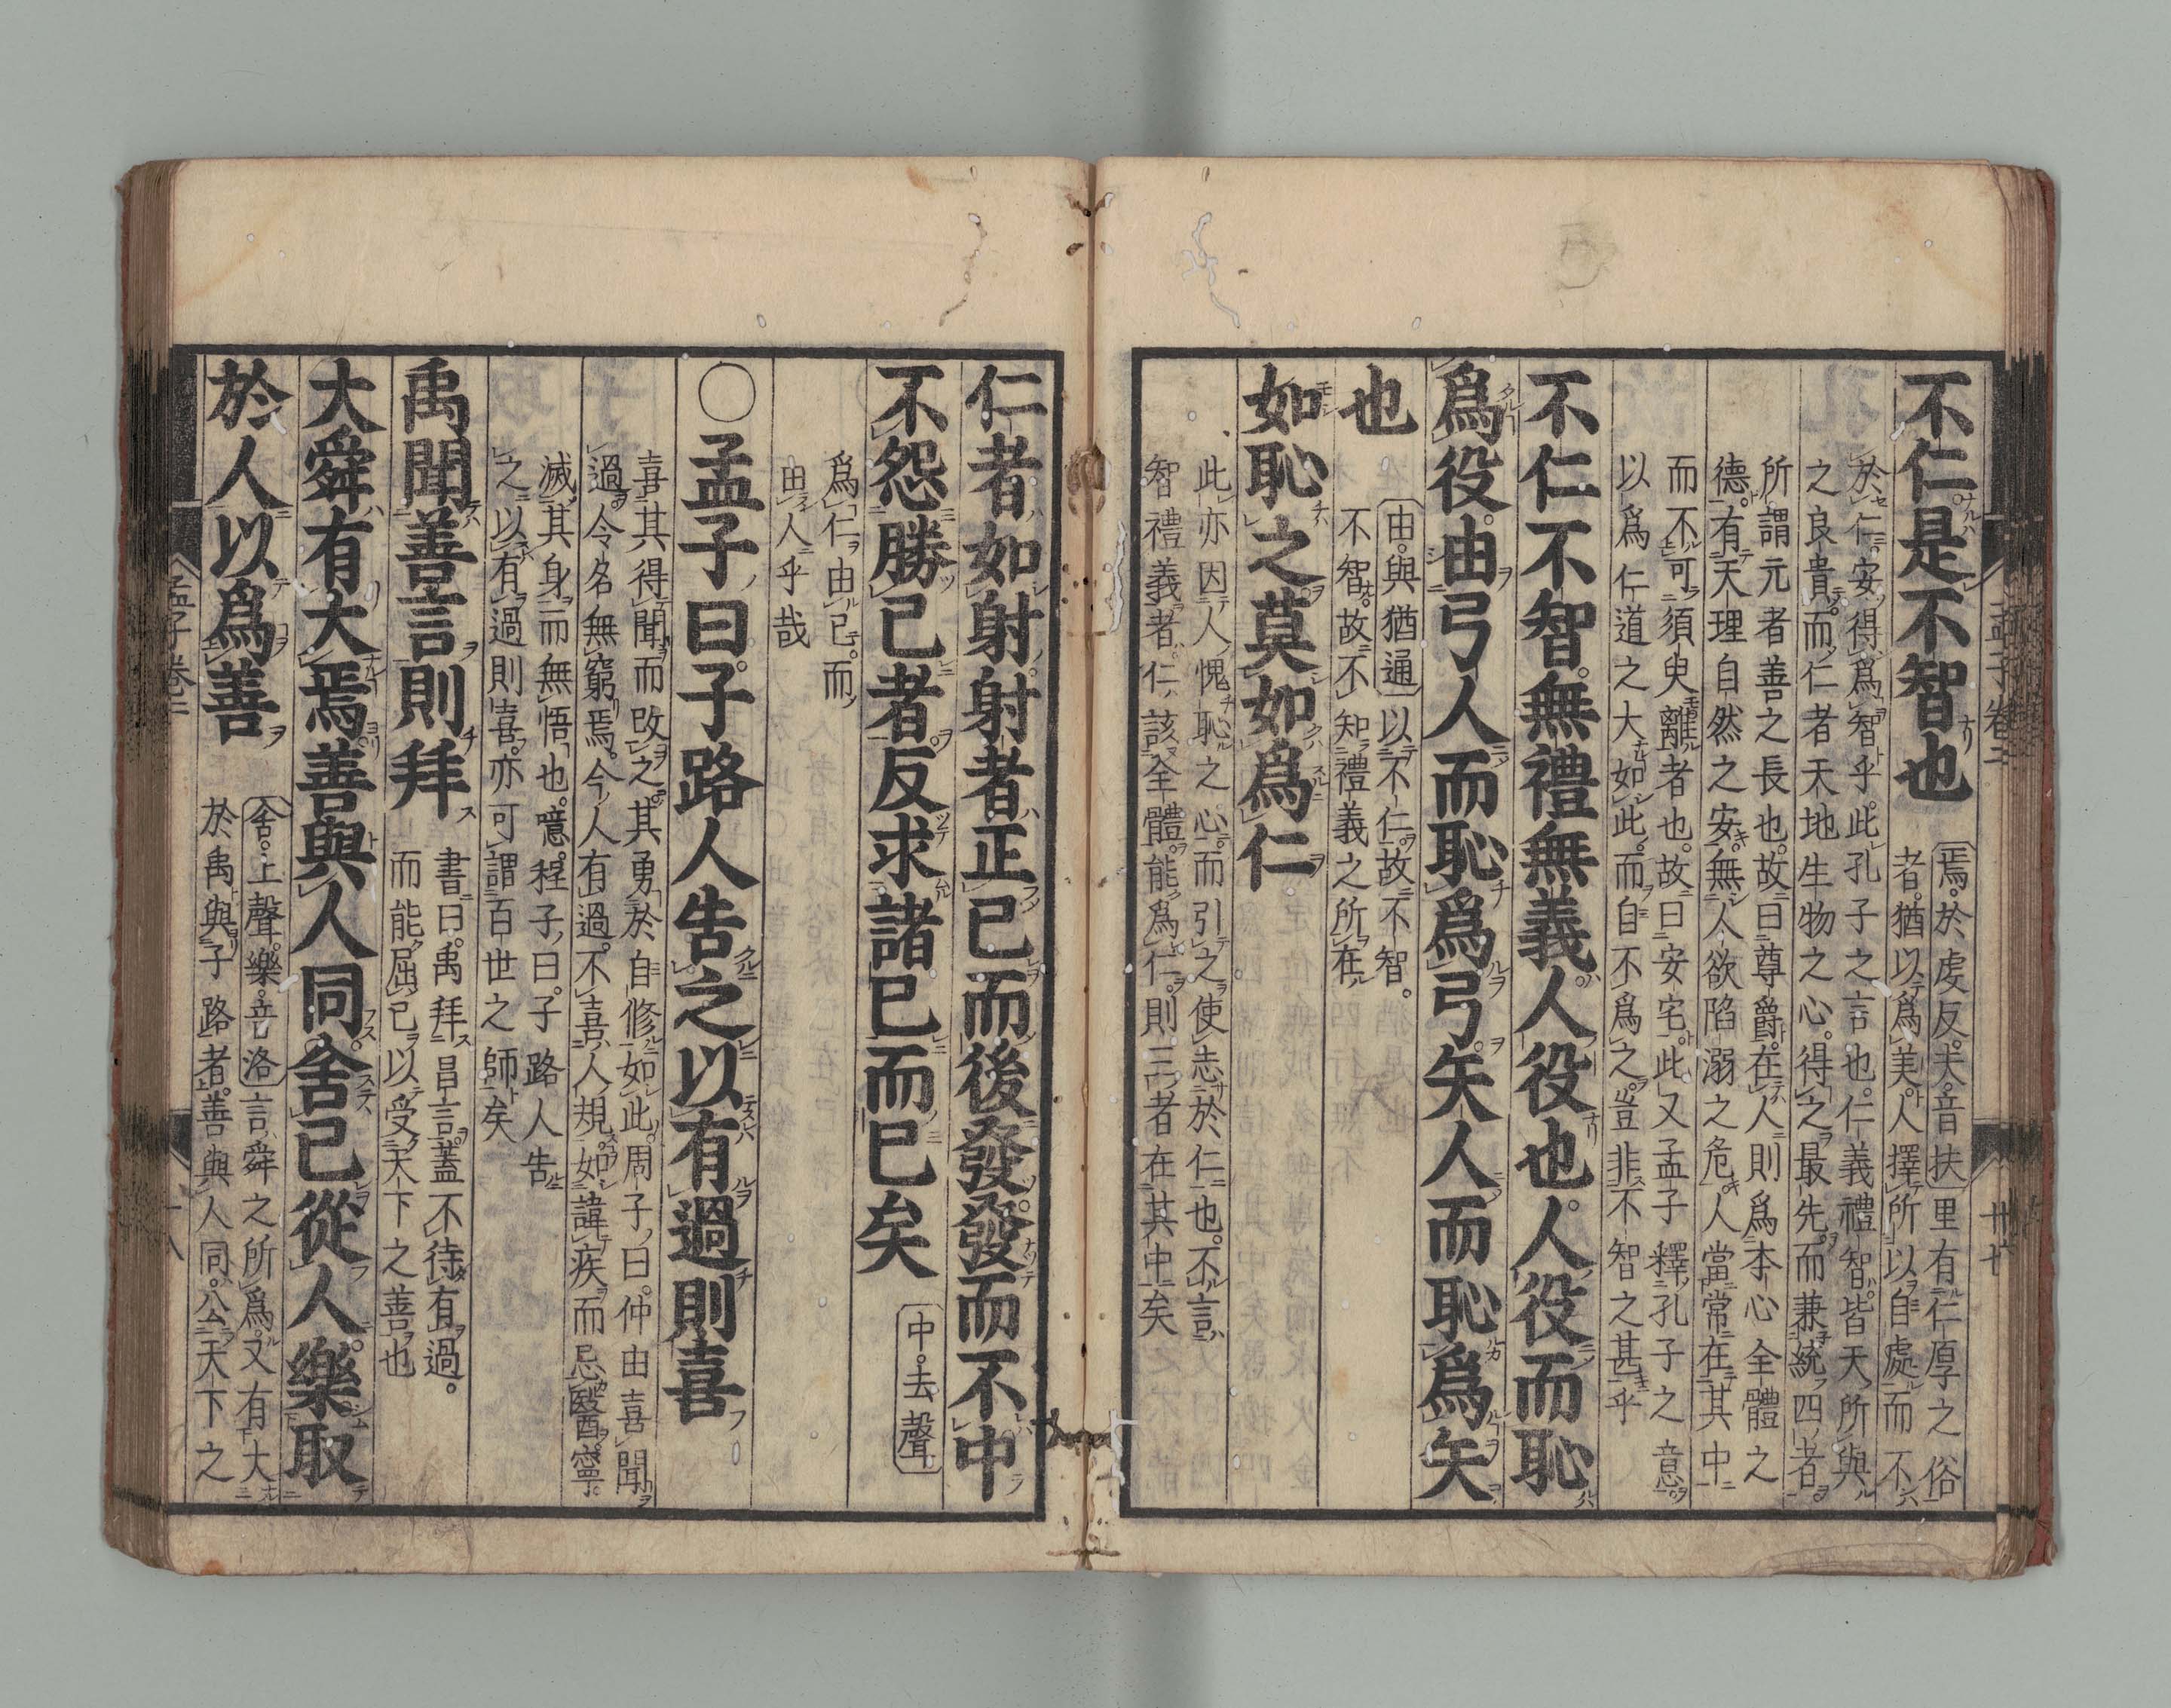 不仁是不智也
焉。於虔反。夫。音扶里有仁厚之俗
者。猶以爲美。人擇所以自處而不
於仁。安得爲智乎。此孔子之言也。仁義禮智。皆天所與
之良貴。而仁者天地生物之心。得之最先。而兼統四者。
所謂元者善之長也。故曰尊爵。在人則爲本心全體之
德。有天理自然之安。無人欲陷溺之危。人當常在其中
而不可須臾離者也。故曰安宅。此又孟子釋孔子之意。
以爲仁道之大如此。而自不爲之。豈非不智之甚乎
不仁不智。無禮無義。人役也。人役而恥
爲役。由弓人而恥爲弓。矢人而恥爲矢
也
由。與猶通以不仁。故不智。
不智。故不知禮義之所在
如恥之。莫如爲仁
此亦因人愧恥之心。而引之使志於仁也。不言
智禮義者。仁該全體。能爲仁。則三者在其中矣
仁者如射。射者正己而後發。發而不中
不怨勝己者。反求諸己而已矣
中。去聲。
爲仁由己。而
由人乎哉
○孟子曰。子路人告之以有過則喜
喜其得聞而改之。其勇於自修如此。周子曰。仲由喜聞
過。令名無窮焉。今人有過。不喜人規。如諱疾而忌醫。寧
滅其身而無悟也。噫。程子曰。子路人告
之以有過則喜。亦可謂百世之師矣
禹聞善言則拜
書曰。禹拜昌言。蓋不待有過。
而能屈己以受天下之善也
大舜有大焉。善與人同。舍己從人。樂取
於人以爲善
舍。上聲。樂。音洛言舜之所爲。又有大
於禹與子路者。善與人同。公天下之
孟子卷二
孟子卷二